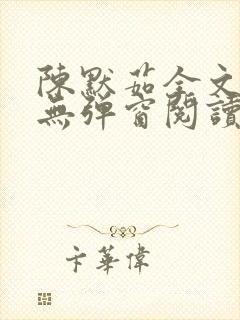 陳默茹全文
無彈窗閱讀
卞華偉